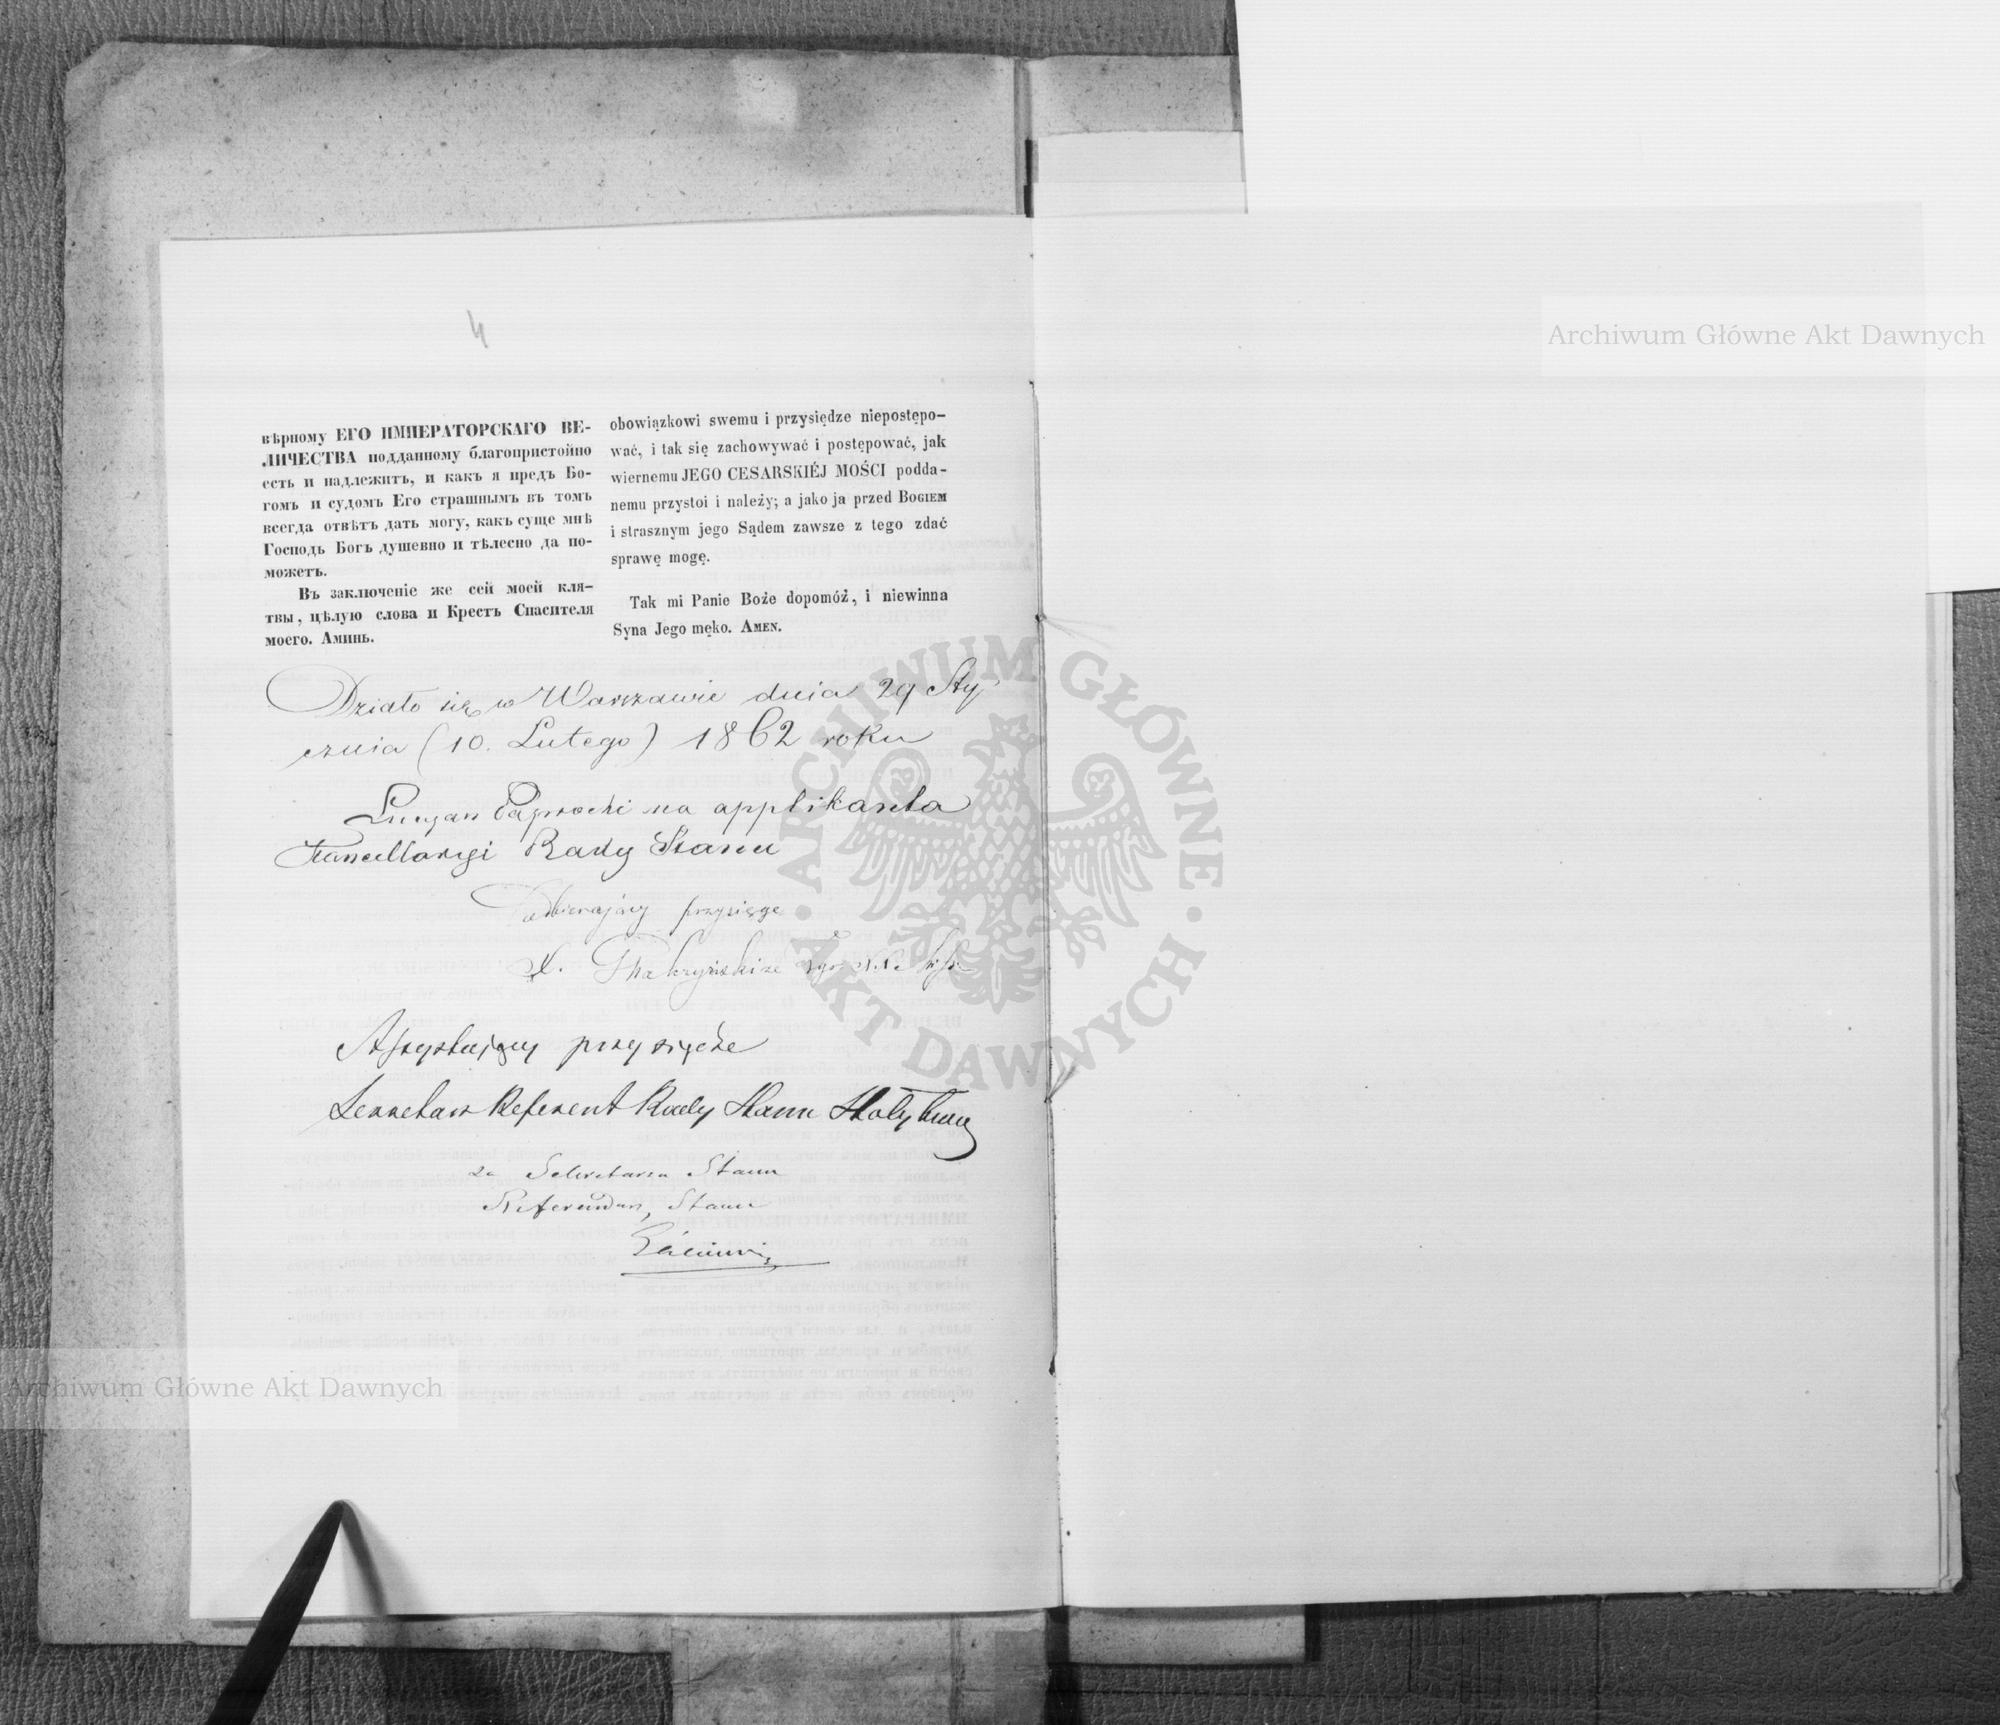 4
вѣрному ЕГО ИМПЕРАТОРСКАГО ВЕ-
ЛИЧЕСТВА подданному благопристойно
есть и надлежитъ, и какъ я предъ Бо-
гомъ и судомъ Его страшнымъ въ томъ
всегда отвѣтъ дать могу, какъ суще мнѣ
Господь Богъ душевно и тѣлесно да по-
можетъ.
Въ заключеніе же сей моей кля-
твы, цѣлую слова и Крестъ Спасителя
моего. Аминь.
obowiązkowi swemu i przysiędze niepostępo-
wać, i tak się zachowywać i postępować, jak
wiernemu JEGO CESARSKIÉJ MOŚCI podda-
nemu przystoi i należy; a jako ja przed BOGIEM
i strasznym jego Sądem zawsze z tego zdać
sprawę mogę.
Tak mi Panie Boże dopomóż, i niewinna
Syna Jego męko. AMEN.
Działo się w Warszawie dnia 29 Sty-
cznia (10. Lutego) 1862 roku
Lucyan Paprocki na applikanta
Kancellaryi Rady Stanu
Odbierający przysięgę
X.
Assystujący przysiędze
Sekretarz Referent Rady Stanu
za Sekretarza Stanu
Referendarz Stanu
Archiwum Główne Akt Dawnych
Archiwum Główne Akt Dawnych
ARCHIWUM GŁÓWNE
AKT DAWNYCH